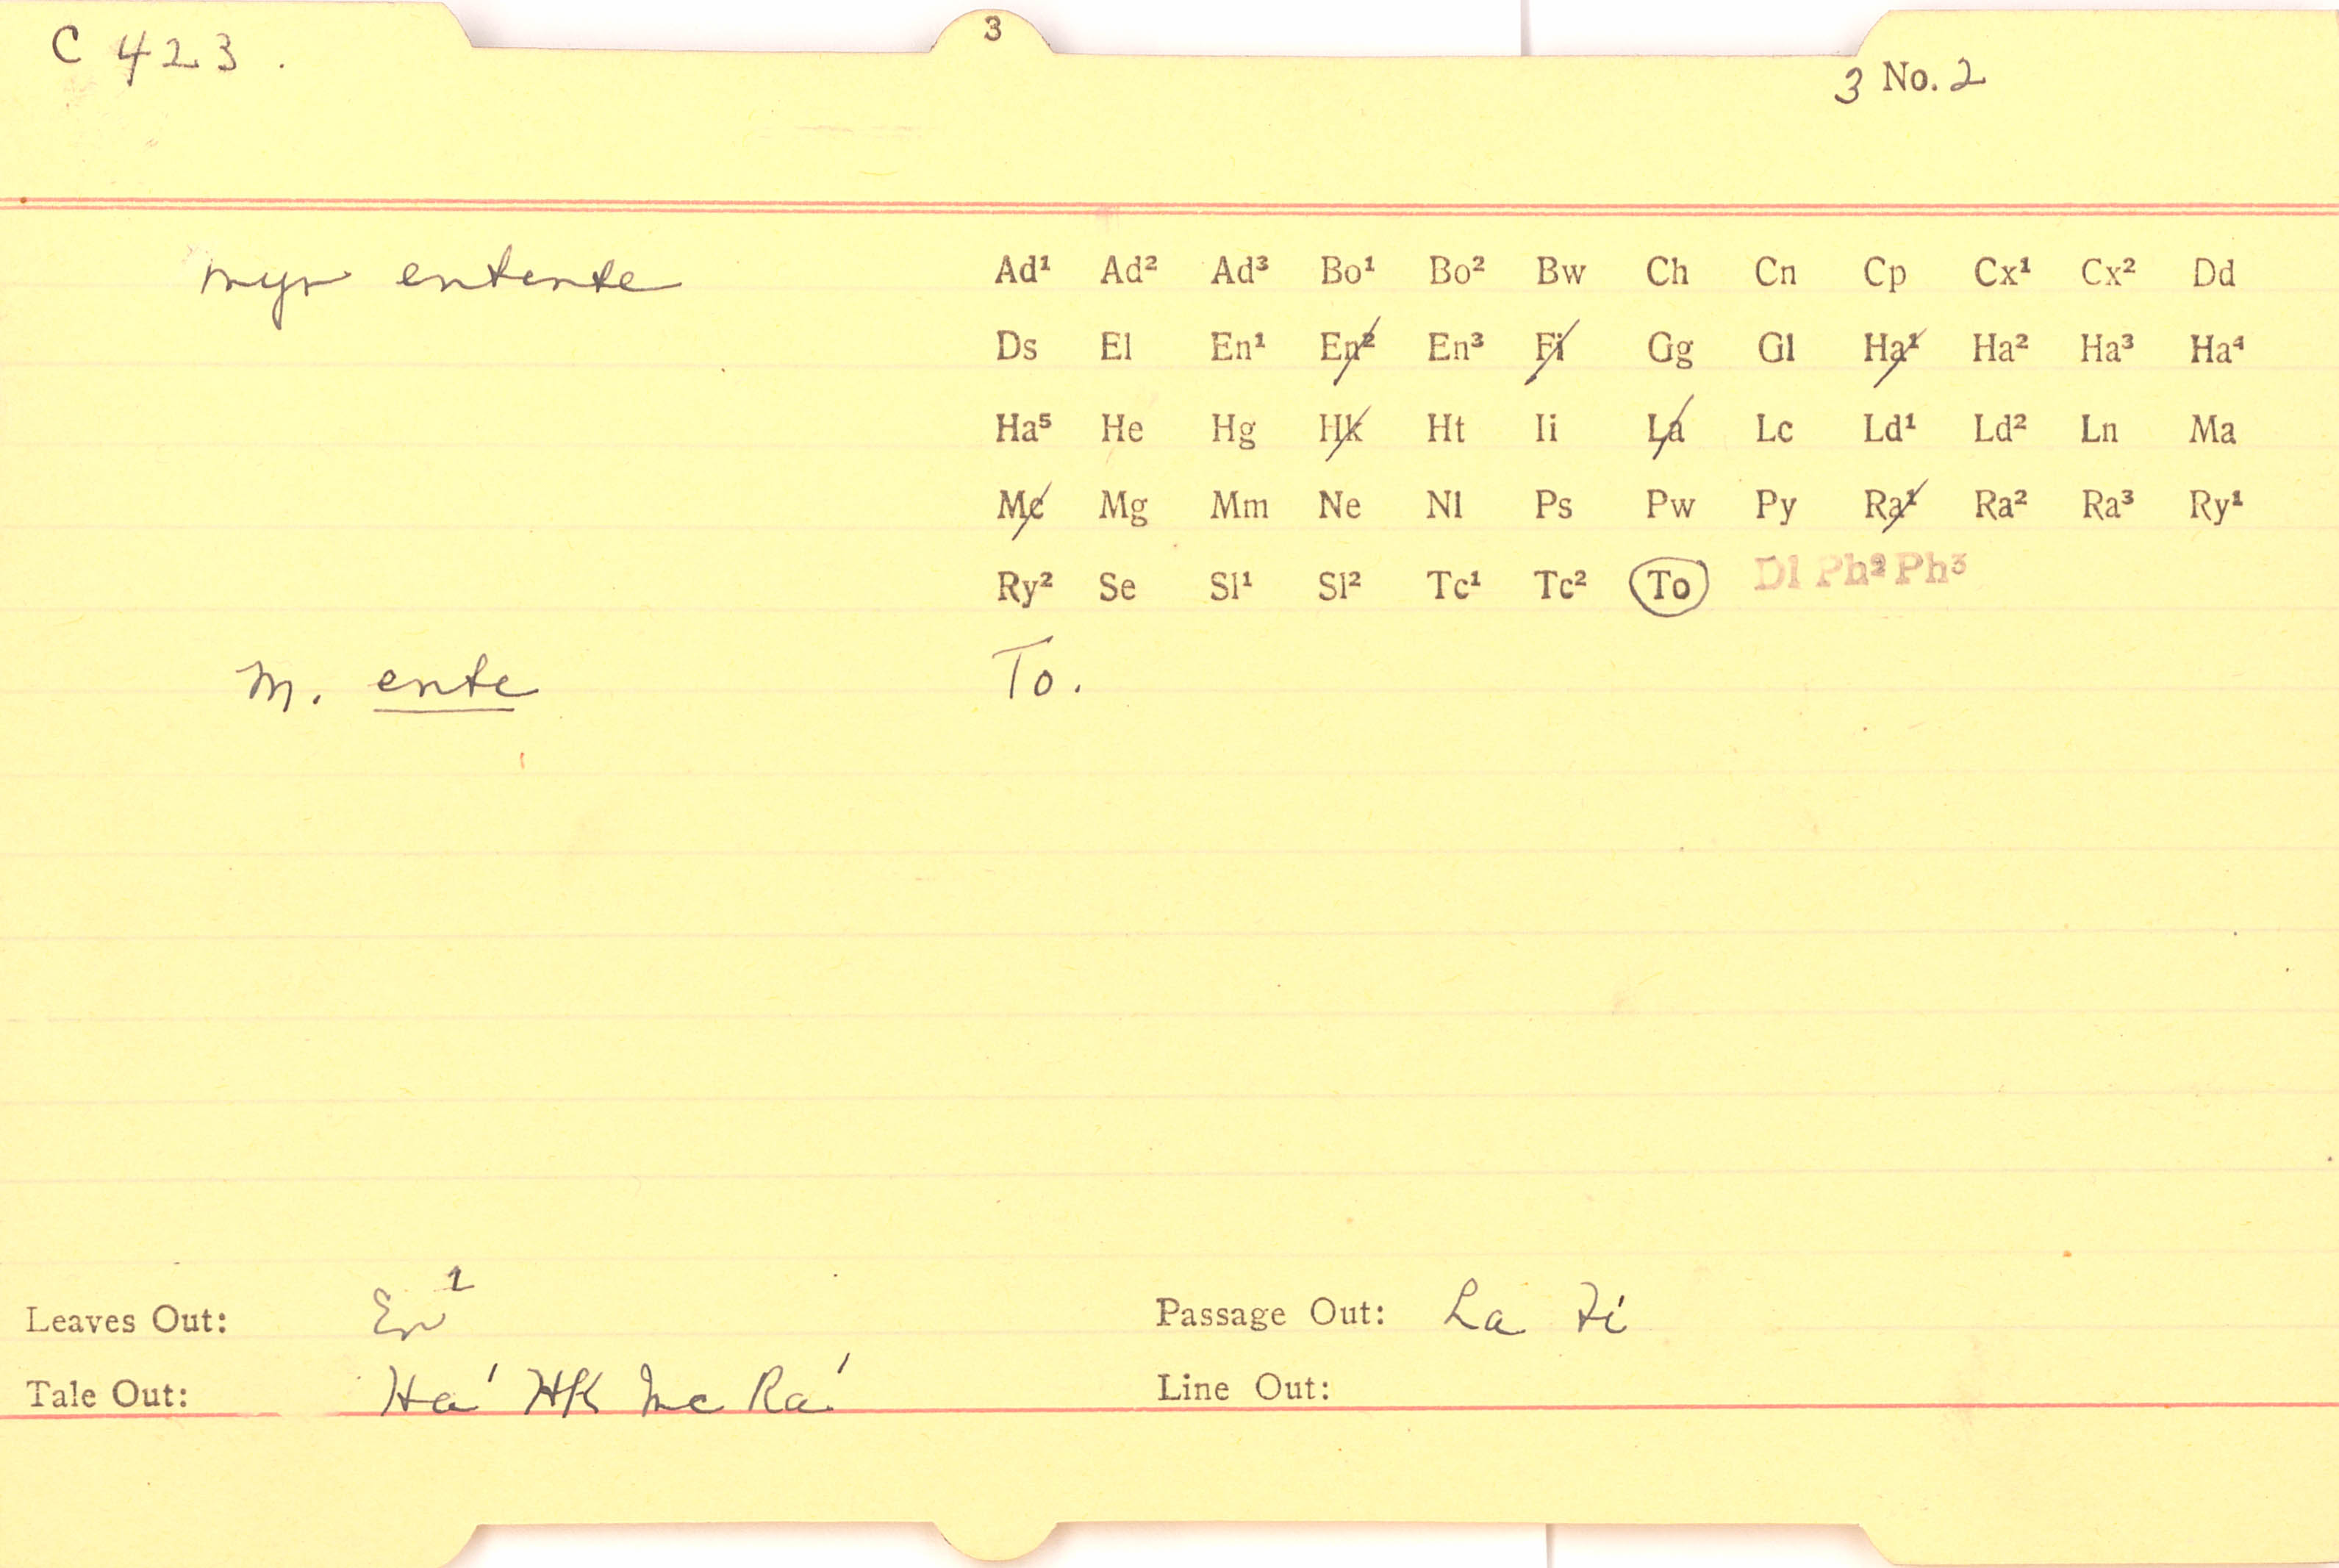 C 423.
3
3 No. 2
myn entente
Ad¹ Ad² Ad³ Bo¹ Bo² Bw Ch Cn Cp Cx¹ Cx² Dd
Ds El En¹ En² En³ Fi Gg Gl Ha¹ Ha² Ha³ Ha⁴
Ha⁵ He Hg Hk Ht Ii La Lc Ld¹ Ld² Ln Ma
Mc Mg Mm Ne Nl Ps Pw Py Ra¹ Ra² Ra³ Ry¹
Ry² Se Sl¹ Sl² Tc¹ Tc² To Dl Ph² Ph³
m. ente To.
Leaves Out: En² Passage Out: La Fi
Tale Out: Ha¹ Hk Mc Ra¹ Line Out: